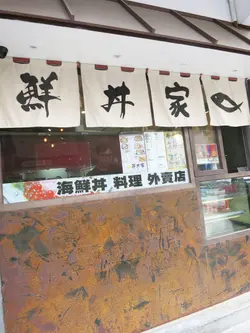 鮮丼家
海鮮丼 料理 外賣店